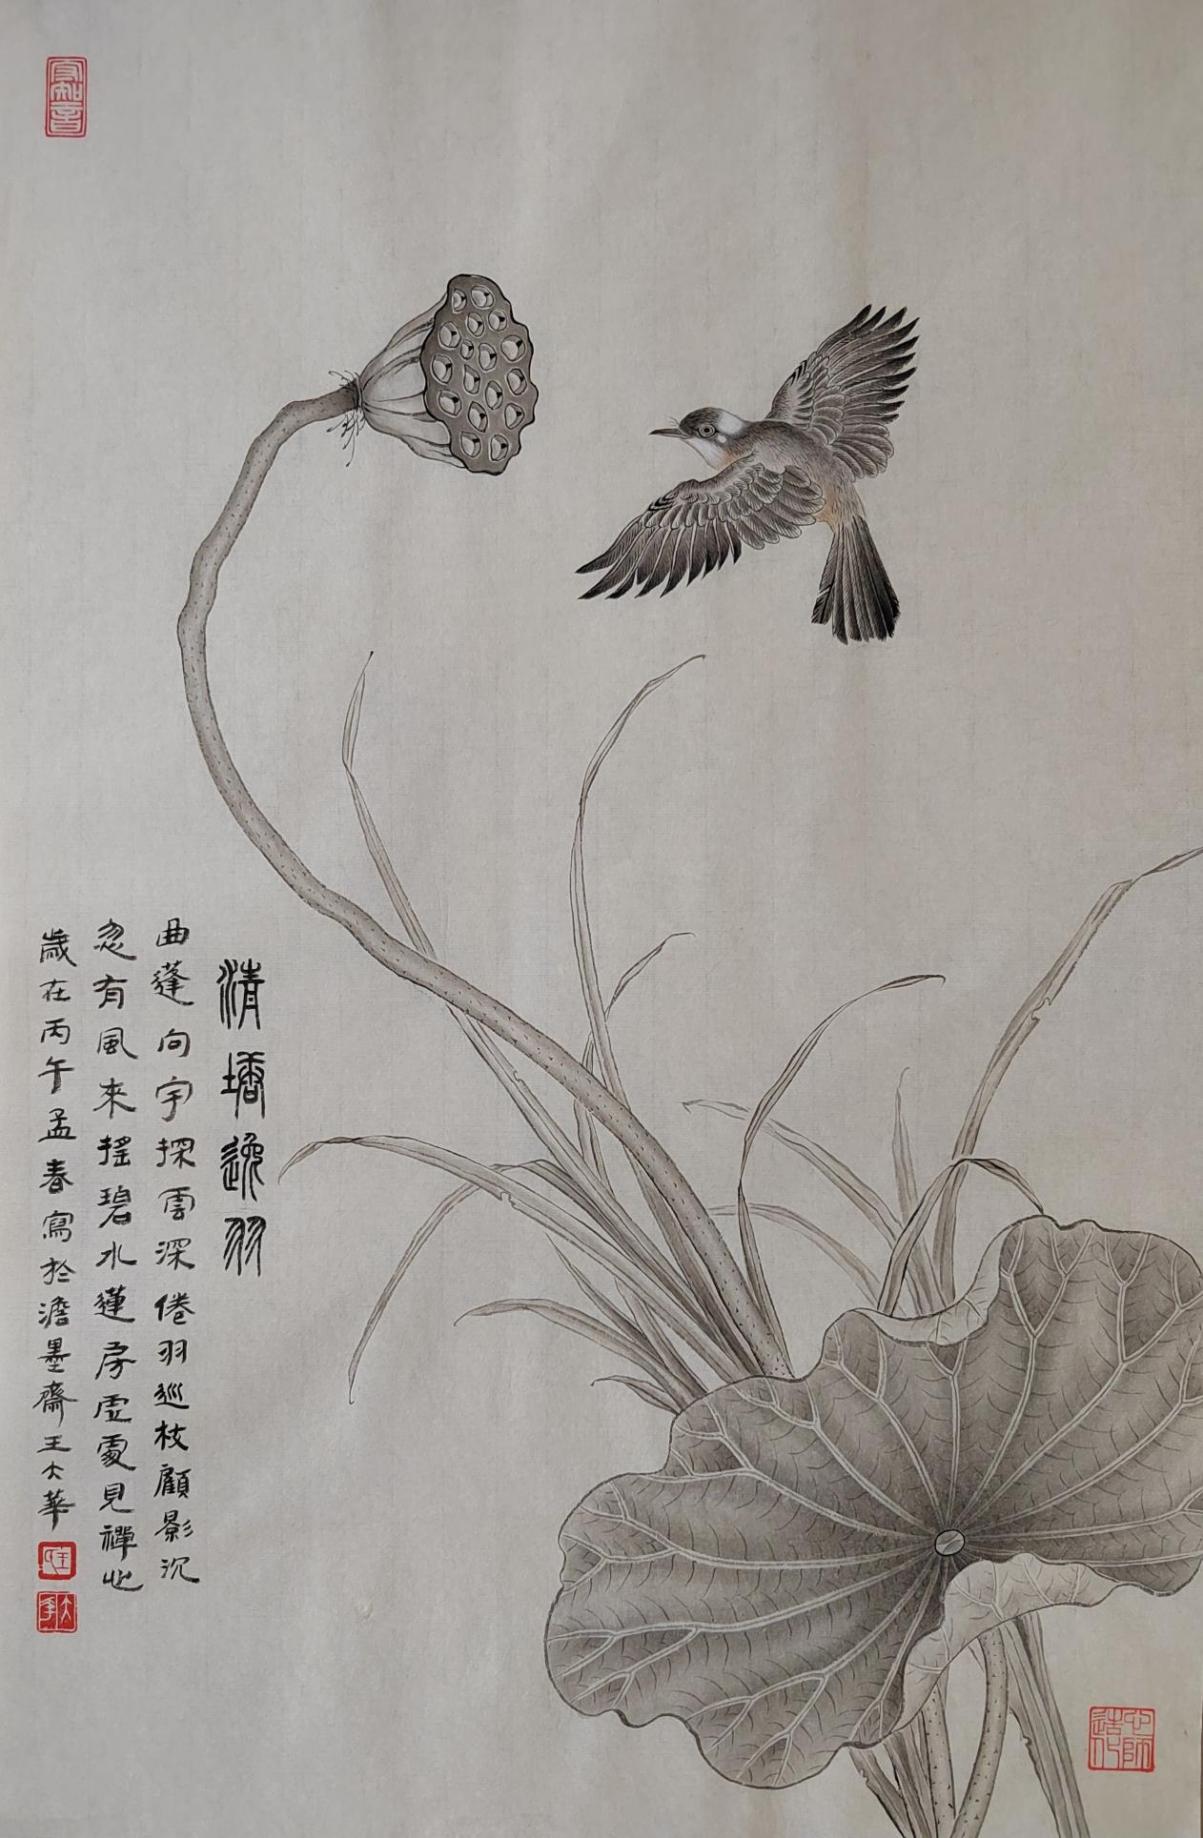 清塘逸羽
曲蓬向宇探雲深倦羽巡枝顧影沉
忽有風來搖碧水蓮房虛處見禪心
歲在丙午孟春寫於澹墨齋王大華
大華
心師造化